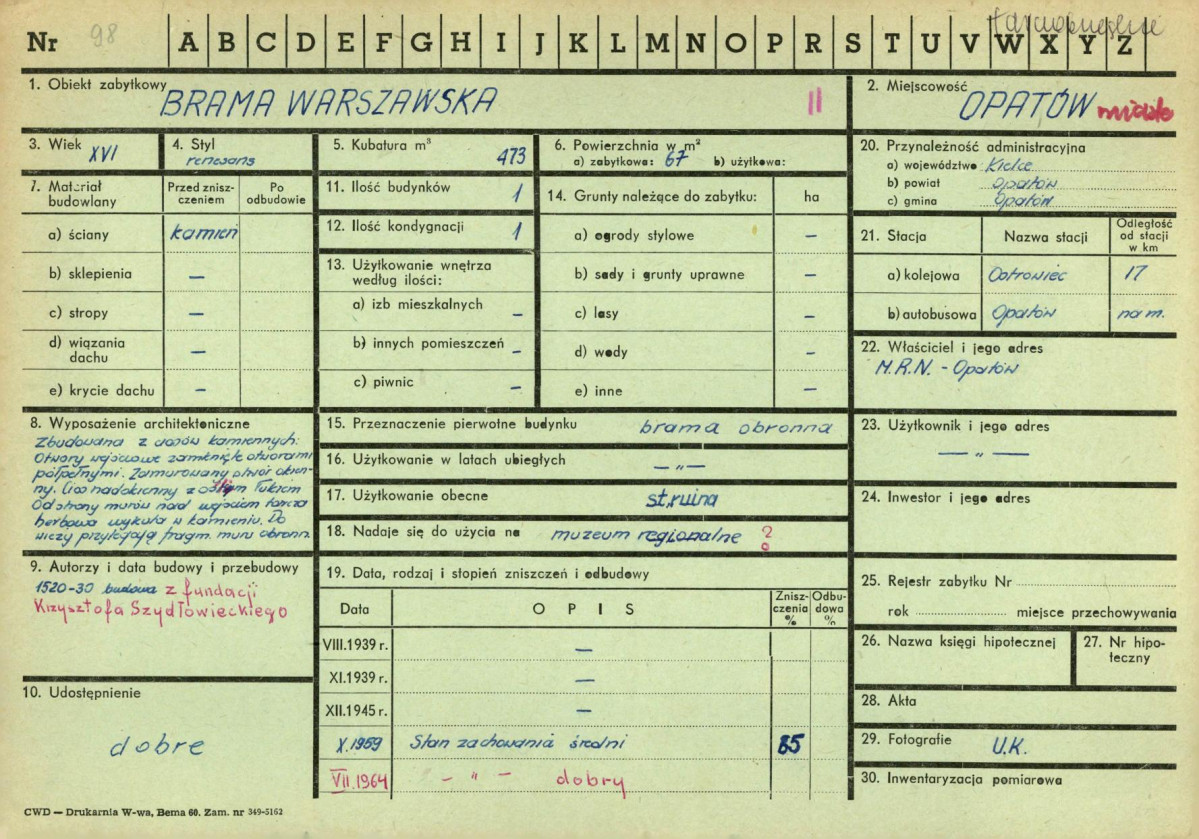 Nr 98 A B C D E F G H I J K L M N O P R S T U V W X Y Z
tarnobrzeskie
1. Obiekt zabytkowy BRAMA WARSZAWSKA II
2. Miejscowość OPATÓW miasto
3. Wiek XVI
4. Styl renesans
5. Kubatura m³ 473
6. Powierzchnia w m²
a) zabytkowa: 67 b) użytkowa:
7. Materiał budowlany
Przed zniszczeniem
Po odbudowie
a) ściany kamień
b) sklepienia —
c) stropy —
d) wiązania dachu —
e) krycie dachu —
11. Ilość budynków 1
12. Ilość kondygnacji 1
13. Użytkowanie wnętrza
według ilości:
a) izb mieszkalnych —
b) innych pomieszczeń —
c) piwnic —
14. Grunty należące do zabytku: ha
a) ogrody stylowe —
b) sady i grunty uprawne —
c) lasy —
d) wody —
e) inne —
20. Przynależność administracyjna
a) województwo Kielce
b) powiat Opatów
c) gmina Opatów
21. Stacja
Nazwa stacji
Odległość
od stacji
w km
a) kolejowa Ostrowiec 17
b) autobusowa Opatów na m.
22. Właściciel i jego adres
M.R.N. - Opatów
8. Wyposażenie architektoniczne
Zbudowana z ciosów kamiennych.
Otwory wejściowe zamknięte otworami
półpełnymi. Zamurowany otwór okien-
ny. Cios nadokienny z oślim łukiem
Od strony murów nad wejściem tarcza
herbowa wykuta w kamieniu. Do
wieży przylegają fragm. muru obronn.
15. Przeznaczenie pierwotne budynku brama obronna
16. Użytkowanie w latach ubiegłych — „ —
17. Użytkowanie obecne st. ruina
18. Nadaje się do użycia na muzeum regionalne ?
23. Użytkownik i jego adres
— „ —
24. Inwestor i jego adres
9. Autorzy i data budowy i przebudowy
1520-30 budowa z fundacji
Krzysztofa Szydłowieckiego
19. Data, rodzaj i stopień zniszczeń i odbudowy
Data
OPIS
Zniszczenia %
Odbudowa %
VIII.1939 r. —
XI.1939 r. —
XII.1945 r. —
X.1959 Stan zachowania średni 85
VII.1964 — „ — dobry
10. Udostępnienie
dobre
25. Rejestr zabytku Nr
rok miejsce przechowywania
26. Nazwa księgi hipotecznej
27. Nr hipoteczny
28. Akta
29. Fotografie U.K.
30. Inwentaryzacja pomiarowa
CWD — Drukarnia W-wa, Bema 60. Zam. nr 349-5162